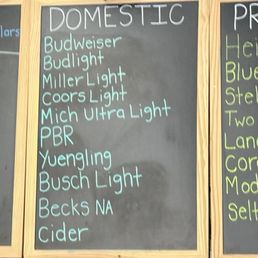 DOMESTIC
Budweiser
Budlight
Miller Light
Coors Light
Mich Ultra Light
PBR
Yuengling
Busch Light
Becks NA
Cider
llars
PR
Hei
Blue
Stel
Two
Land
Coro
Mod
Selt